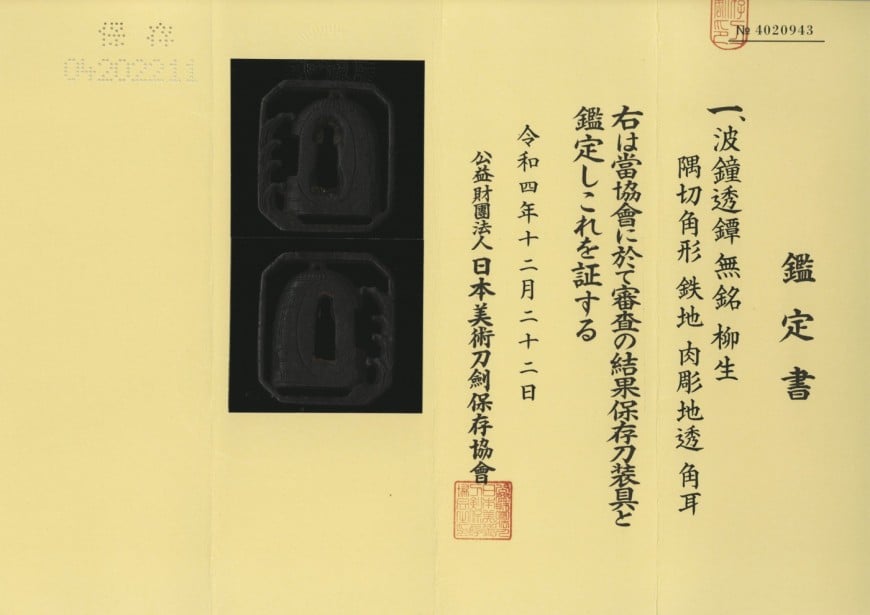 鑑定書
№ 4020943
一、波鐘透鐔 無銘 柳生
隅切角形 鉄地 肉彫地透 角耳
右は當協會に於て審査の結果保存刀装具と
鑑定しこれを証する
令和四年十二月二十二日
公益財團法人 日本美術刀劍保存協會
保存
04202211